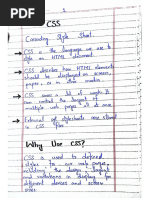 1
CSS
Cascading Style Sheet
CSS is the language we use to
style an HTML document.
CSS describes how HTML elements
should be displayed on screen,
paper, or in other media
CSS saves a lot of work. It
can control the layout of
multiple web pages all at once
External stylesheets are stored
in CSS files
Why Use CSS?
CSS is used to defined
styles for our web pages,
including the design, layout
and variations in display for
different devices and screen
sizes.